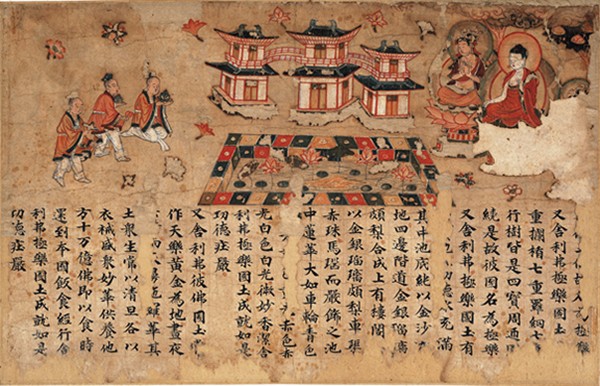 為極樂
又舍利弗極樂國土
重欄楯七重羅網七
行樹皆是四寶周匝
繞是故彼國名為極樂
又舍利弗極樂國土有
充滿
其中池底純以金沙
地四邊階道金銀瑠璃
頗梨合成上有樓閣
以金銀瑠璃頗梨車磲
赤珠馬瑙而嚴飾之池
中蓮華大如車輪青色
赤色赤
光白色白光微妙香潔舍
利弗極樂國土成就如是
功德莊嚴
又舍利弗彼佛國土
作天樂黃金為地晝夜
雨 華其
土眾生常以清旦各以
衣裓盛眾妙華供養他
方十万億佛即以食時
還到本國飯食經行舍
利弗極樂國土成就如是
功德莊嚴